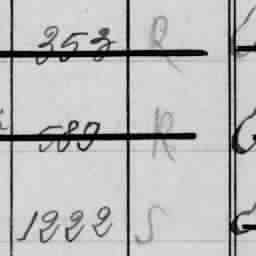 353 R
589 R
1222 S